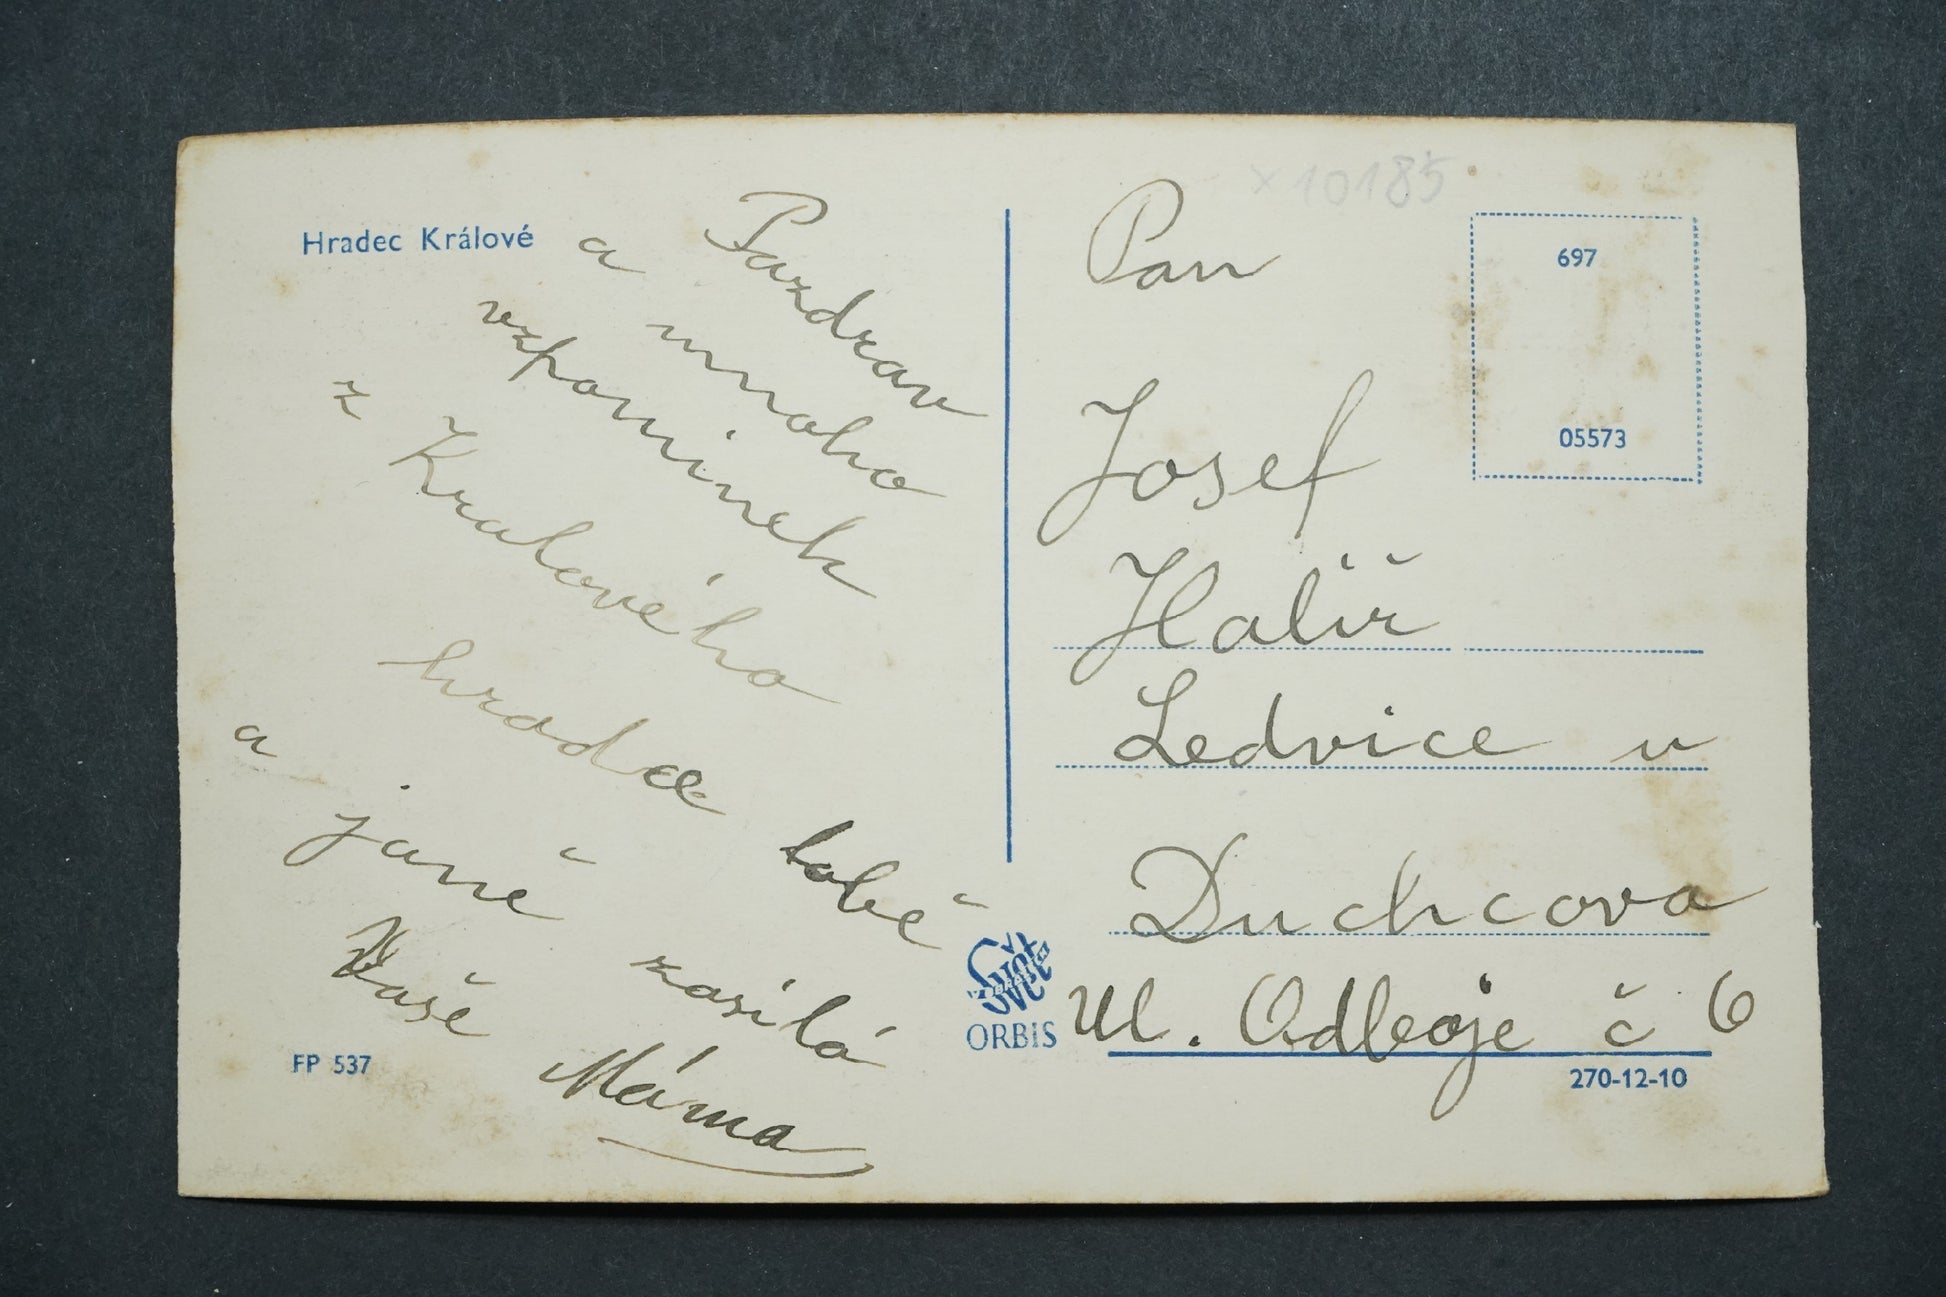 Hradec Králové
Pazdrav
a mnoho
vzpomínek
z Kralového
hradce tobě
a janě zasilá
Vaše Máma
FP 537
Pan
Josef
Halíř
Ledvice u
Duchcova
Ul. Odboje č 6
x10185
697
05573
ORBIS
270-12-10